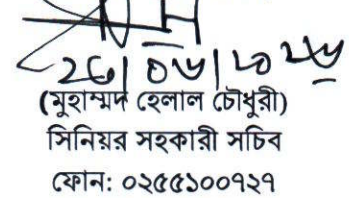 (মুহাম্মদ হেলাল চৌধুরী)
সিনিয়র সহকারী সচিব
ফোন: ০২৫৫১০০৭২৭